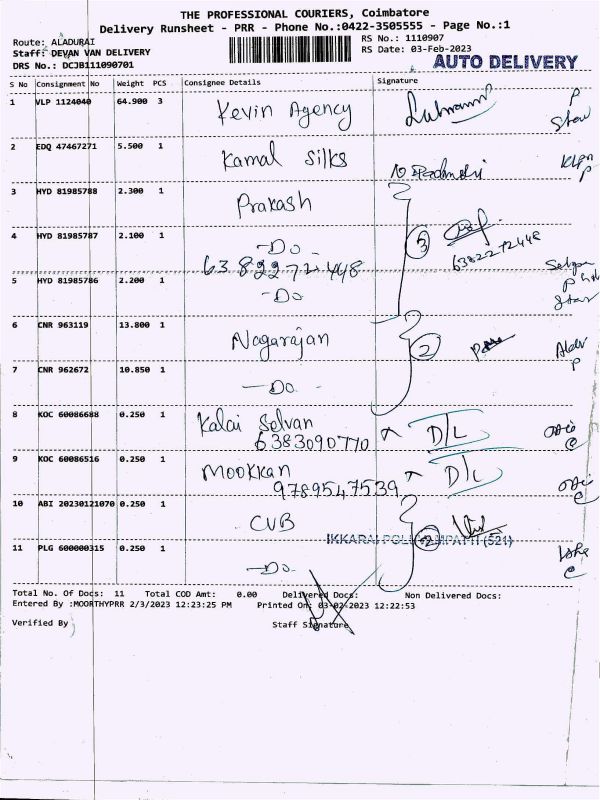 THE PROFESSIONAL COURIERS, Coimbatore
Delivery Runsheet - PRR - Phone No.:0422-3505555 - Page No.:1
Route: ALADURAI
RS No.: 1110907
Staff: DEVAN VAN DELIVERY
RS Date: 03-Feb-2023
DRS No.: DCJB111090701
AUTO DELIVERY
S No Consignment No Weight PCS Consignee Details Signature
1 VLP 1124040 64.900 3 Kevin Agency
2 EDQ 47467271 5.500 1 Kamal Silks
3 HYD 81985788 2.300 1 Prakash
4 HYD 81985787 2.100 1 -Do- 3
6382272448 6382272448
5 HYD 81985786 2.200 1 -Do-
6 CNR 963119 13.800 1 Nagarajan 2
7 CNR 962672 10.850 1 -Do-
8 KOC 60086688 0.250 1 Kalai Selvan D/L
6383090770
9 KOC 60086516 0.250 1 Mookkan D/L
9789547539
10 ABI 20230121070 0.250 1 CUB 2
11 PLG 600000315 0.250 1 -Do-
Total No. Of Docs: 11 Total COD Amt: 0.00 Delivered Docs: Non Delivered Docs:
Entered By :MOORTHYPRR 2/3/2023 12:23:25 PM Printed On: 03-02-2023 12:22:53
Verified By Staff Signature